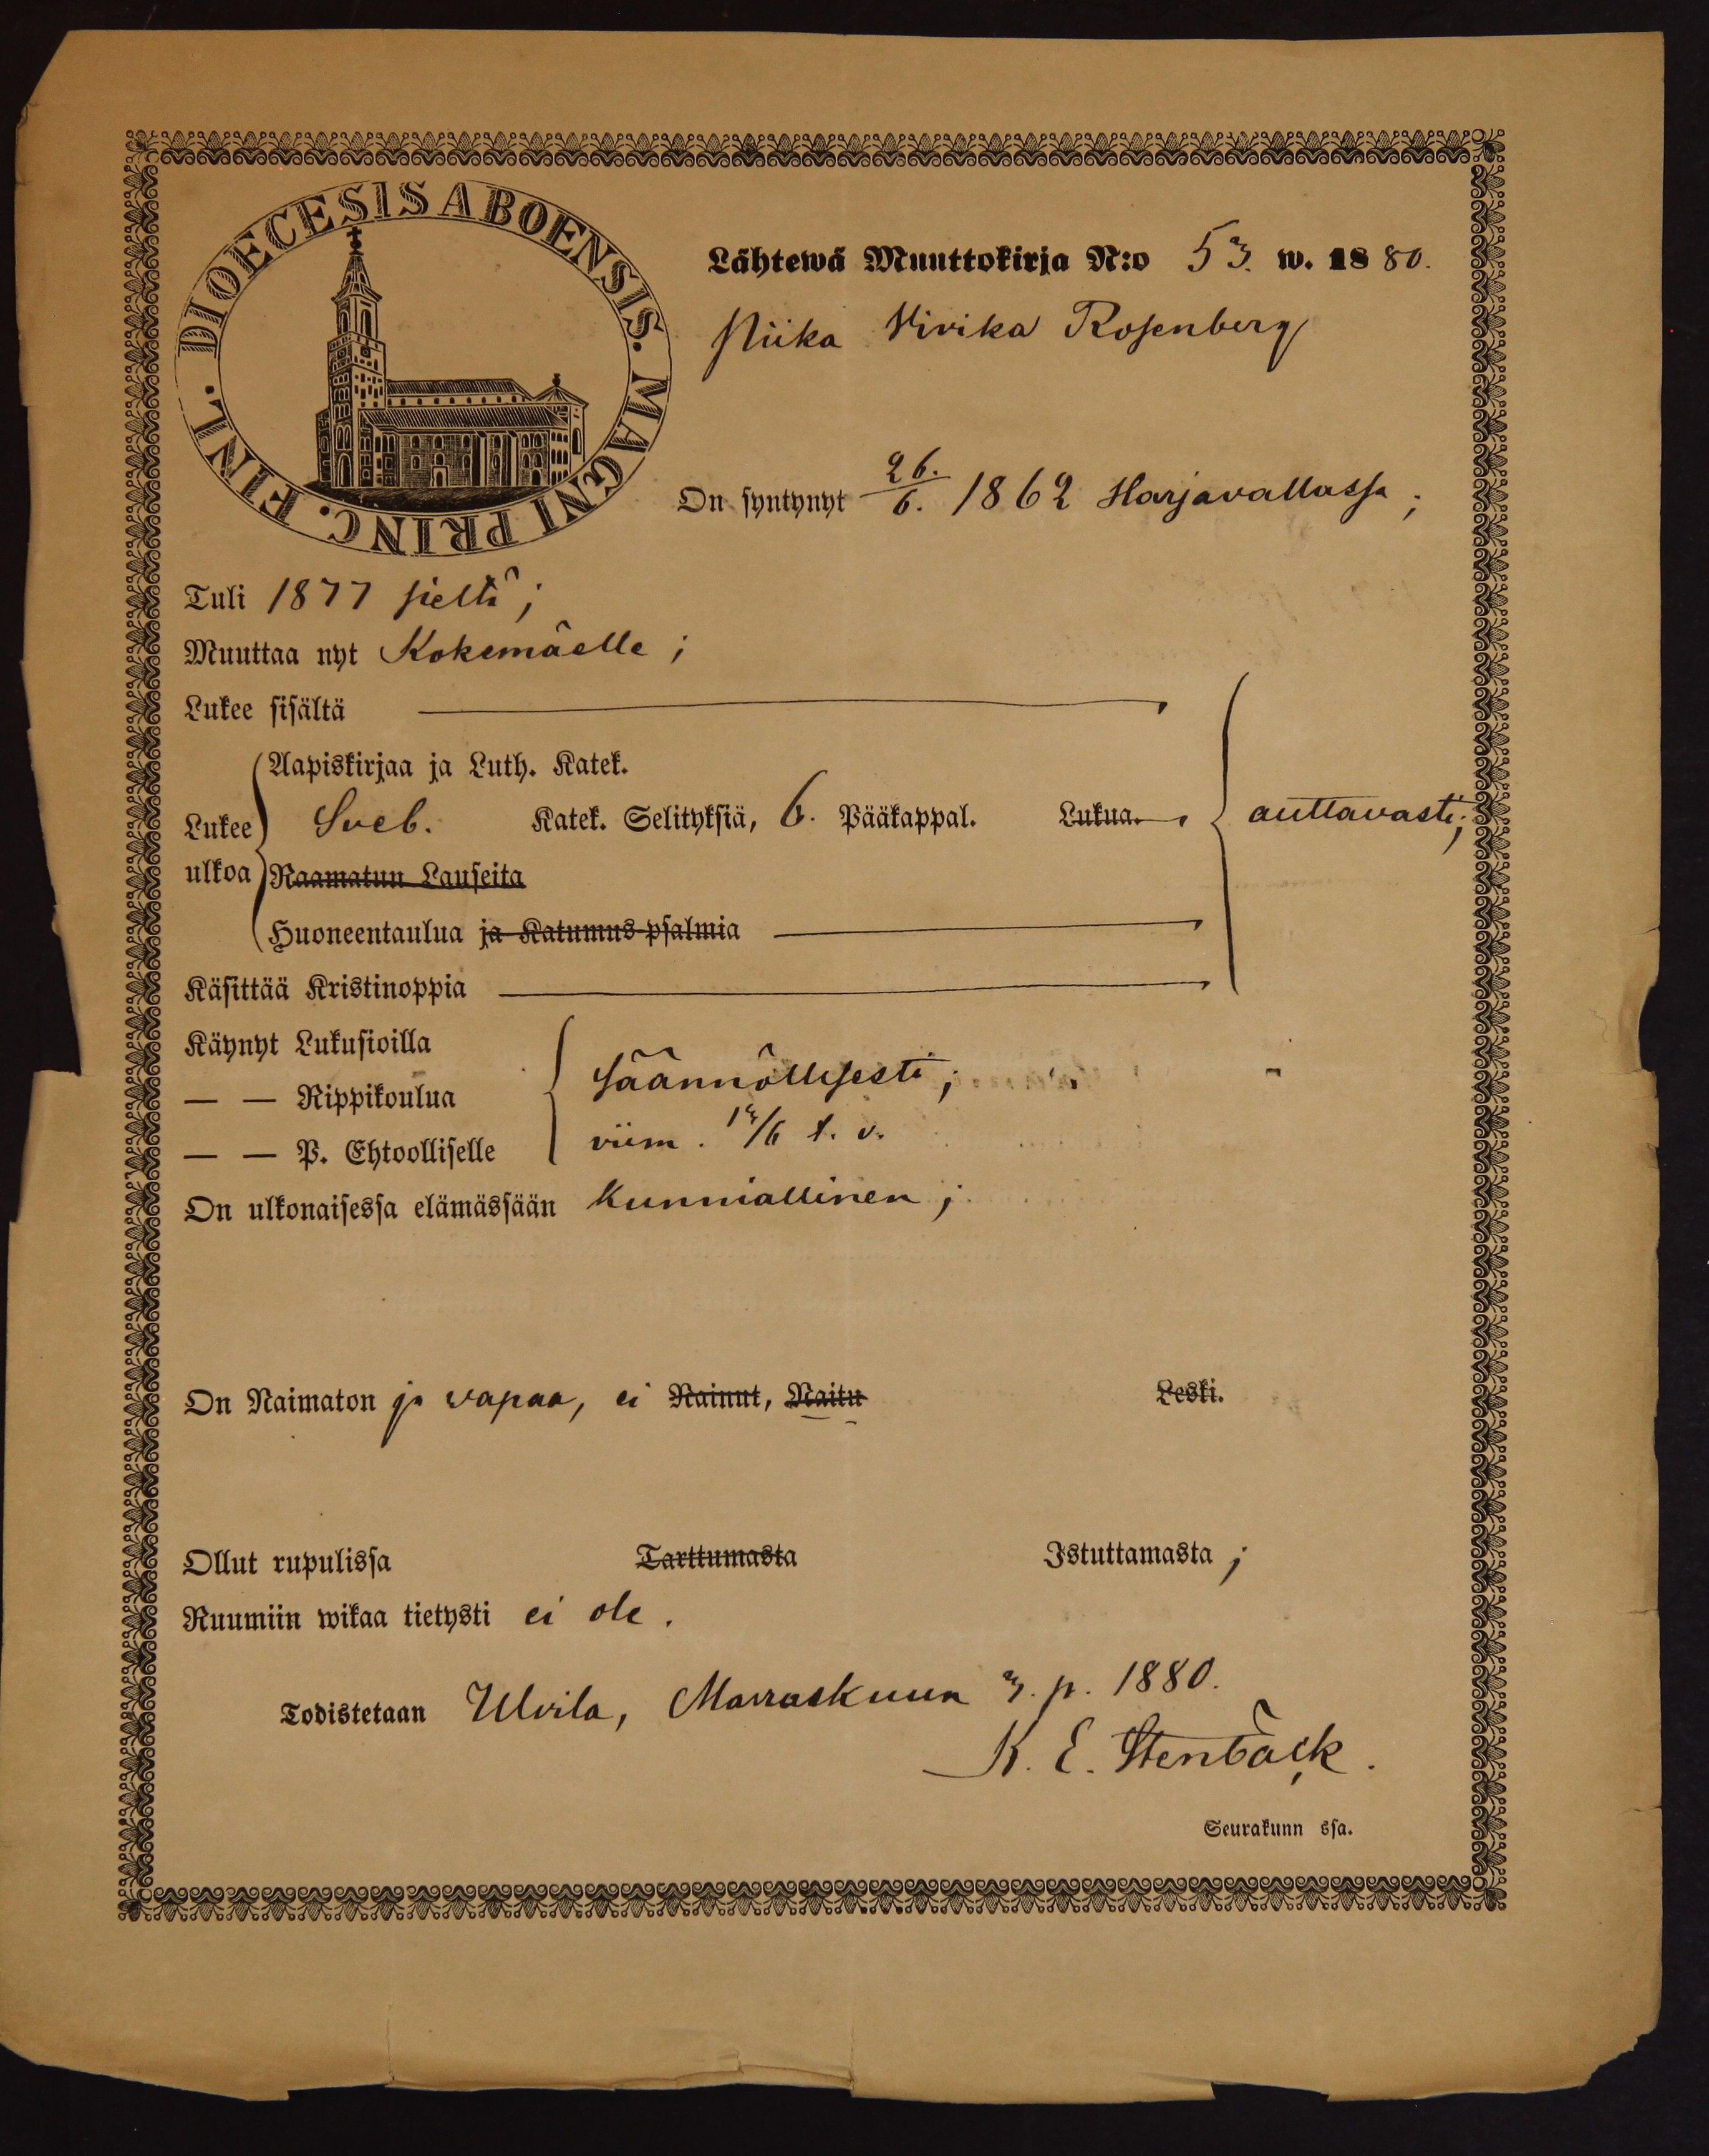 DIOECESIS ABOENSIS. MAGNI PRINC. FINL.
Lähtewä Muuttokirja N:o 53. w. 1880.
Piika Virika Rosenberg
On syntynyt 26./6. 1862 Harjavallassa;
Tuli 1877 sieltä;
Muuttaa nyt Kokemäelle;
Lukee sisältä
Aapiskirjaa ja Luth. Katek.
Lukee Sveb. Katek. Selityksiä, 6. Pääkappal. Lukua. auttavasti;
ulkoa Raamatun Lauseita
Huoneentaulua ja Katumus-psalmia
Käsittää Kristinoppia
Käynyt Lukusioilla
— — Rippikoulua säännöllisesti;
— — P. Ehtoolliselle viim. /6 t. v.
On ulkonaisessa elämässään kunniallinen;
On Naimaton ja vapaa, ei Nainut, Naitu Leski.
Ollut rupulissa Tarttumasta Istuttamasta;
Ruumiin wikaa tietysti ei ole.
Todistetaan Ulvila, Marraskuun 3. p. 1880.
K. E. Stenbäck.
Seurakunn ssa.